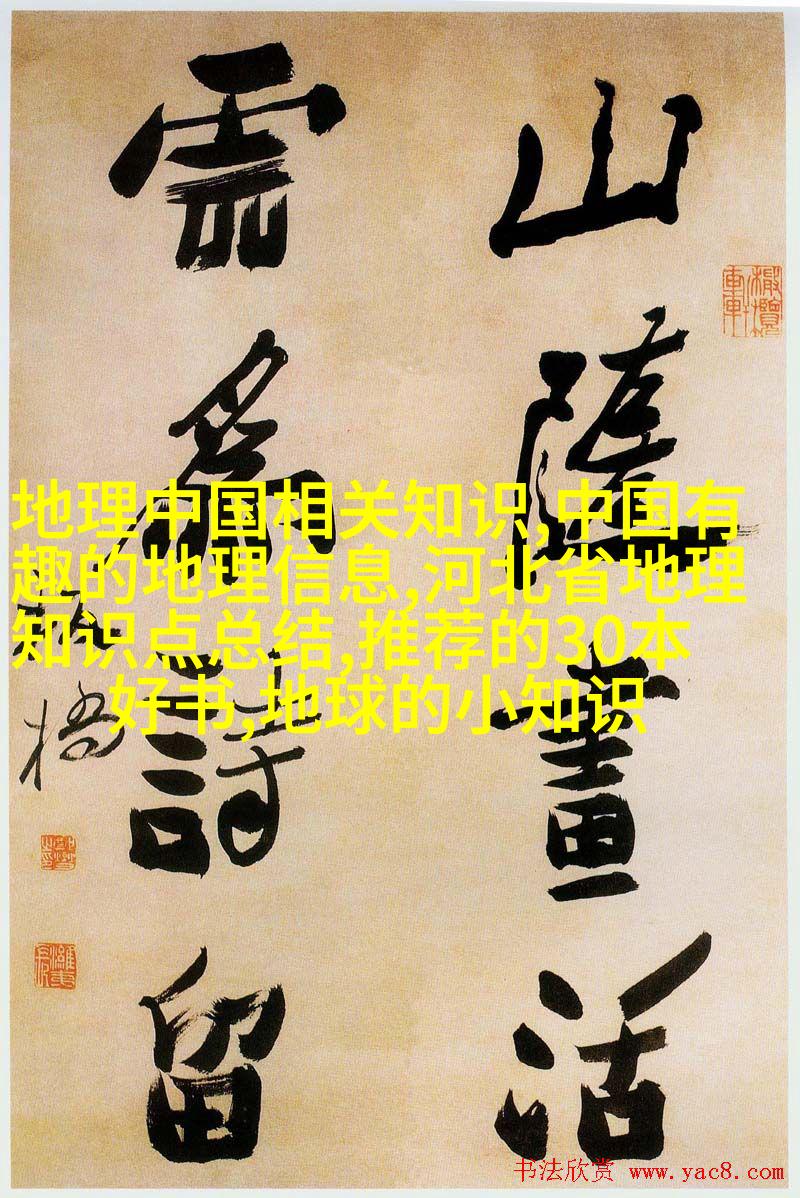 山隨畫活
雲爲詩留
板橋
地理中国相关知识,中国有
趣的地理信息,河北省地理
知识点总结,推荐的30本
好书,地球的小知识
书法欣赏 www.yac8.com